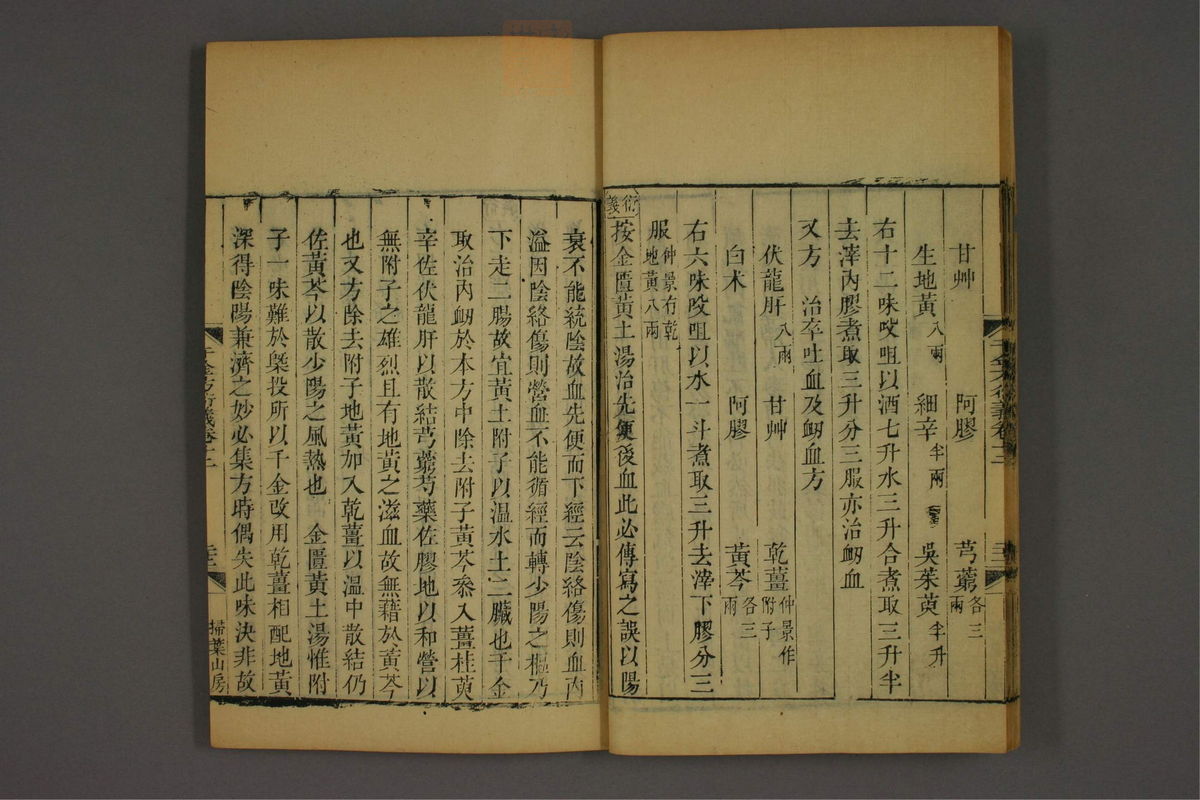 甘艸　阿膠　芎藭各三兩
生地黃八兩　細辛半兩　吳茱萸半升
右十二味㕮咀以酒七升水三升合煮取三升半
去滓內膠煮取三升分三服亦治衂血
又方　治卒吐血及衂血方
伏龍肝八兩　甘艸　乾薑仲景作附子
白术　阿膠　黃芩各三兩
右六味㕮咀以水一斗煮取三升去滓下膠分三
服仲景有乾地黃八兩
衍義按金匱黃土湯治先便後血此必傳寫之誤以陽
衰不能統陰故血先便而下經云陰絡傷則血內
溢因陰絡傷則營血不能循經而轉少陽之樞乃
下走二腸故宜黃土附子以溫水土二臟也千金
取治內衂於本方中除去附子黃芩叅入薑桂萸
辛佐伏龍肝以散結芎藭芍藥佐膠地以和營以
無附子之雄烈且有地黃之滋血故無藉於黃芩
也又方除去附子地黃加入乾薑以溫中散結仍
佐黃芩以散少陽之風熱也　金匱黃土湯惟附
子一味難於槩投所以千金改用乾薑相配地黃
深得陰陽兼濟之妙必集方時偶失此味決非故
千金方衍義卷十二
掃葉山房